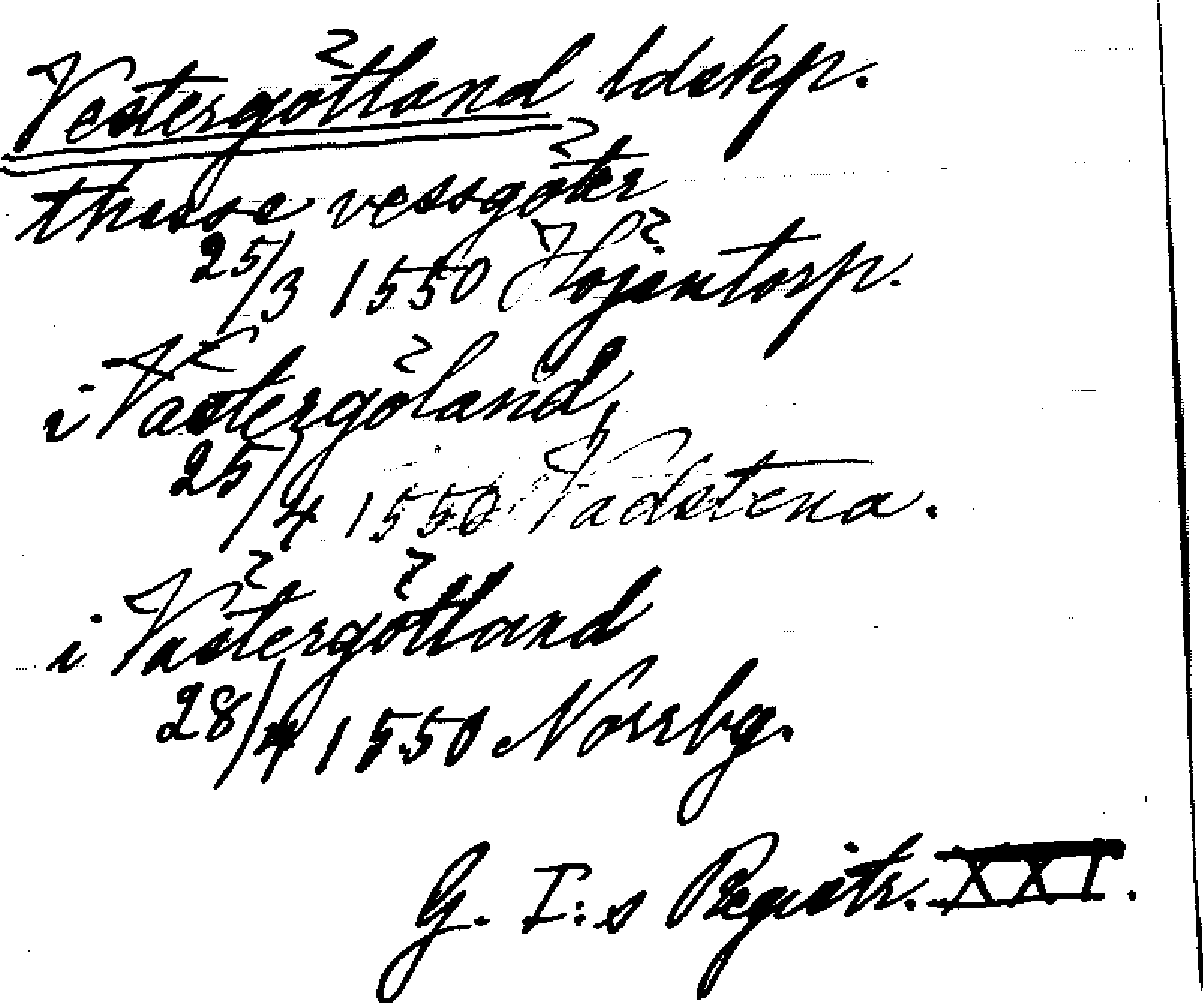 Vestergötland ldskp.
thesse vessgöter
25/3 1550 Höjentorp.
i Västergöland,
25/4 1550 Vadstena.
i Västergötland
28/4 1550 Norrbg.
G. I:s Registr. XXI.